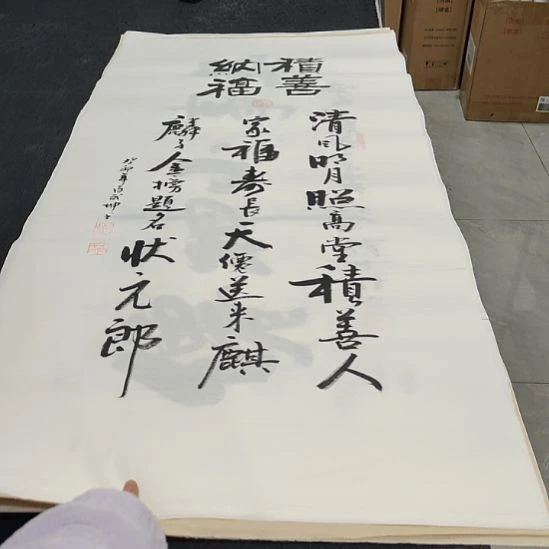 積善
納福
清风明月照高堂積善人
家福寿長天僊送来麒
麟子金榜題名状元郎
癸卯年